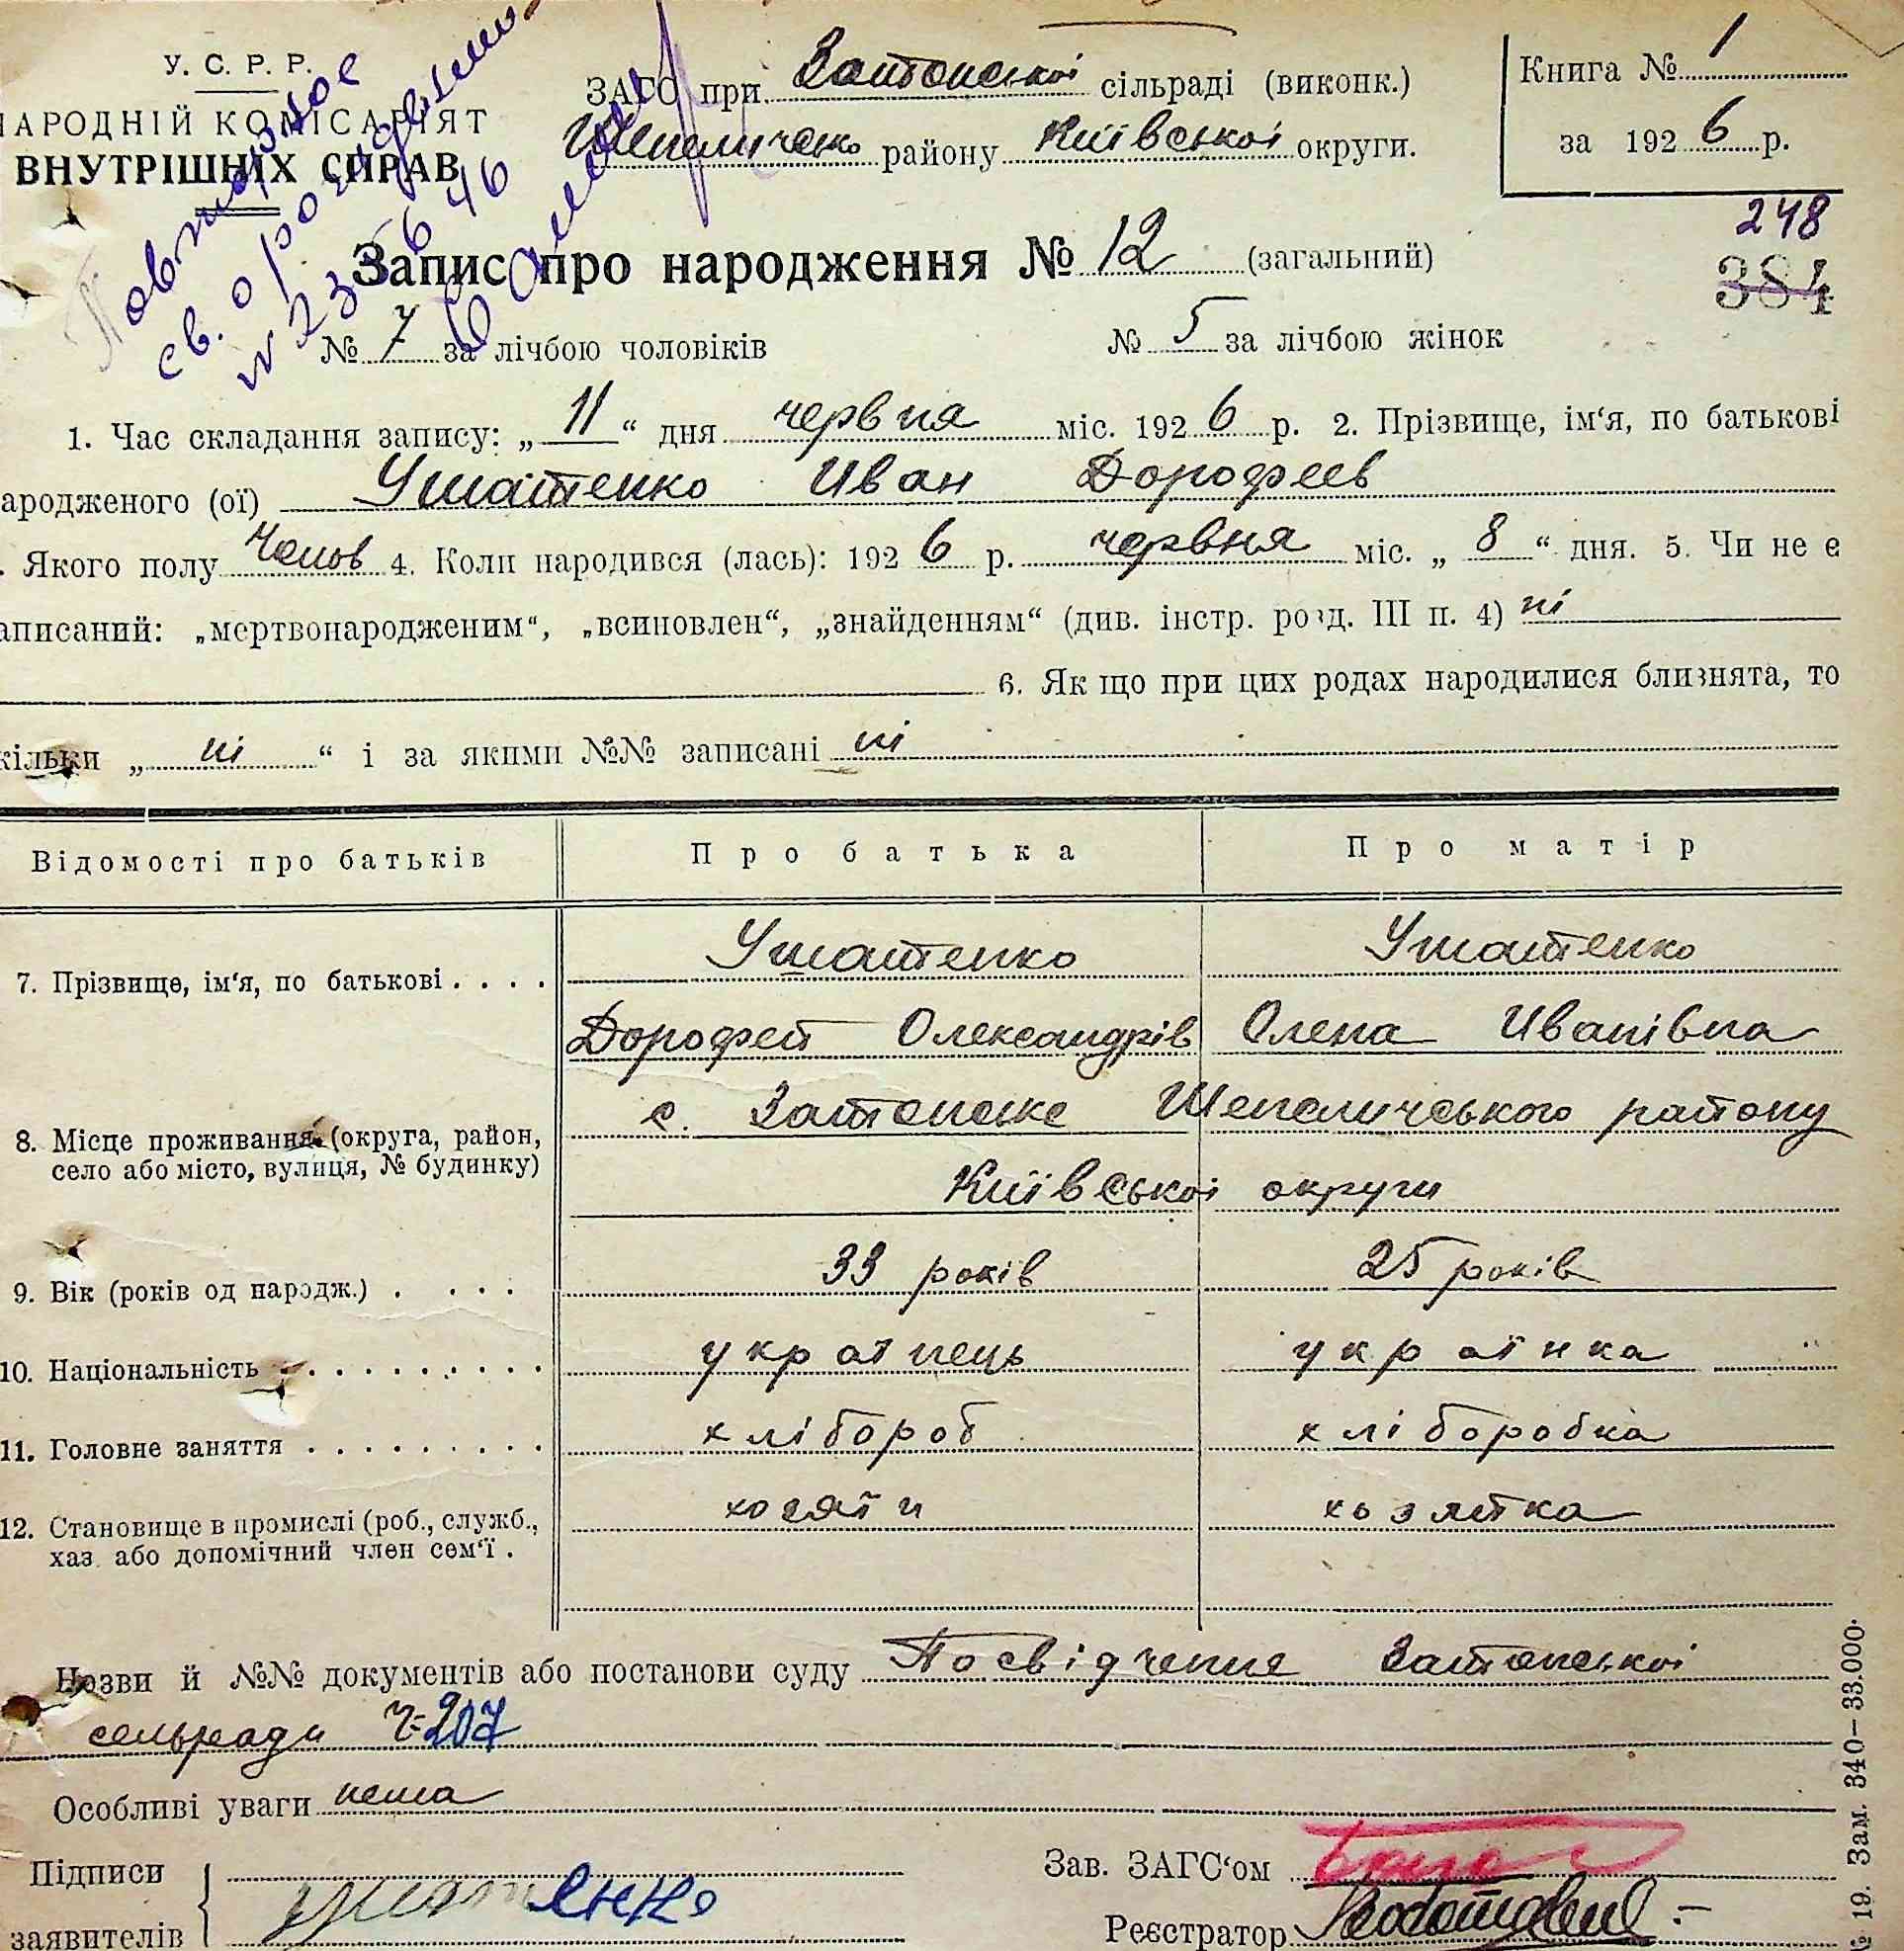 У. С. Р. Р.
НАРОДНІЙ КОМІСАРІЯТ
ВНУТРІШНІХ СПРАВ
Повторное
св. о рождении
№ 23
6 46
ЗАГС при Затонської сільраді (виконк.)
Шепеличсько району Київської округи.
Книга № 1
за 1926 р.
248
384
Запис про народження № 12 (загальний)
№ 7 за лічбою чоловіків № 5 за лічбою жінок
1. Час складання запису: „11“ дня червня міс. 1926 р. 2. Прізвище, ім‘я, по батькові
ародженого (ої) Ушатенко Иван Дорофеев
. Якого полу Чолов 4. Коли народився (лась): 1926 р. червня міс. „8“ дня. 5. Чи не є
аписаний: „мертвонародженим“, „всиновлен“, „знайденням“ (див. інстр. розд. III п. 4) ні
6. Як що при цих родах народилися близнята, то
кільки „ні“ і за якими №№ записані ні
Відомості про батьків Про батька Про матір
7. Прізвище, ім‘я, по батькові . . . . Ушатенко Ушатенко
Дорофей Олександрів Олена Иванівна
8. Місце проживання (округа, район, село або місто, вулиця, № будинку) с. Затонське Шепеличського району
Київської округи
9. Вік (років од народж.) . . . . 33 років 25 років
10. Національність . . . . . . . . . . українець українка
11. Головне заняття . . . . . . . . . . хлібороб хліборобка
12. Становище в промислі (роб., служб., хаз. або допомічний член сем‘ї . хозяїн хозяйка
Назви й №№ документів або постанови суду Посвідчення Затонської
сельради ч-207
Особливі уваги нема
Підписи
заявителів
Ушатенко
Зав. ЗАГС‘ом
Реєстратор
№ 19. Зам. 340—33.000.